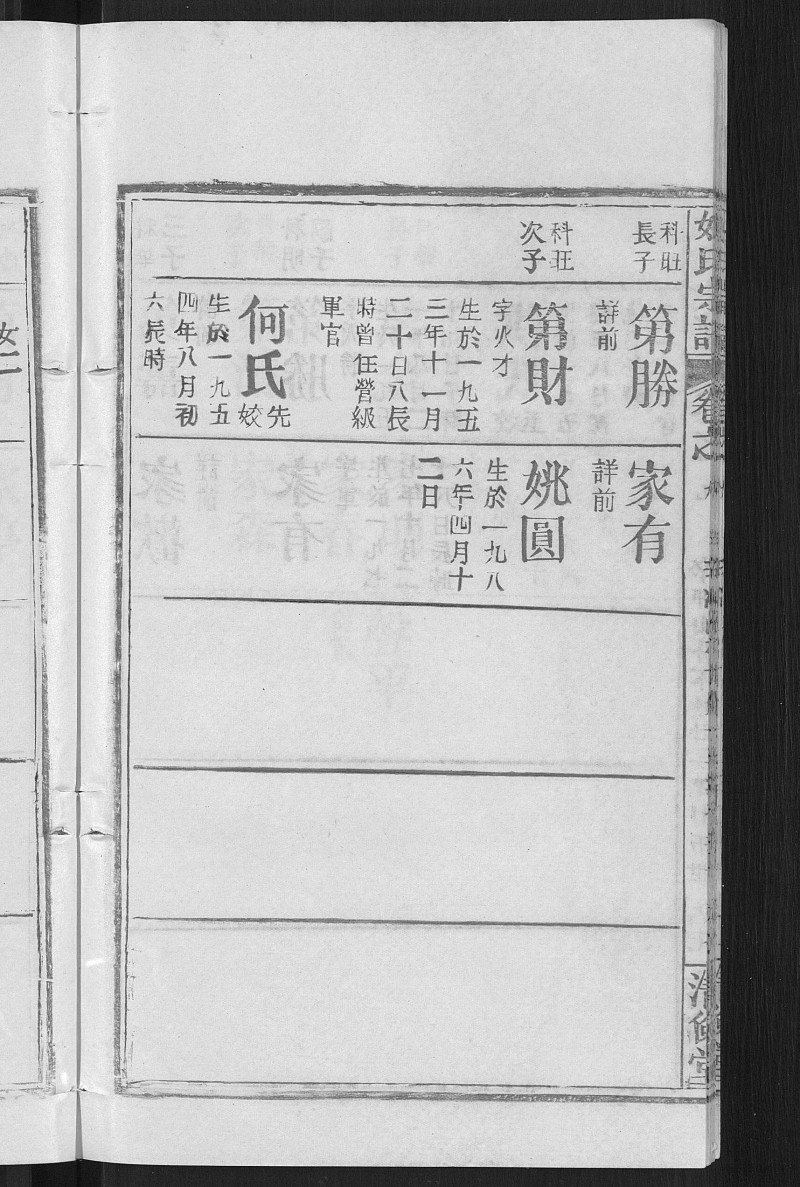 姚氏宗譜
卷之
科旺
長子
科班
次子
第勝
詳前
第財
字火才
生於一九五
三年十一月
二十日八長
時曾任營級
軍官
何氏
先
姣
生於一九五
四年八月初
六辰時
家有
詳前
姚圓
生於一九八
六年四月十
二日